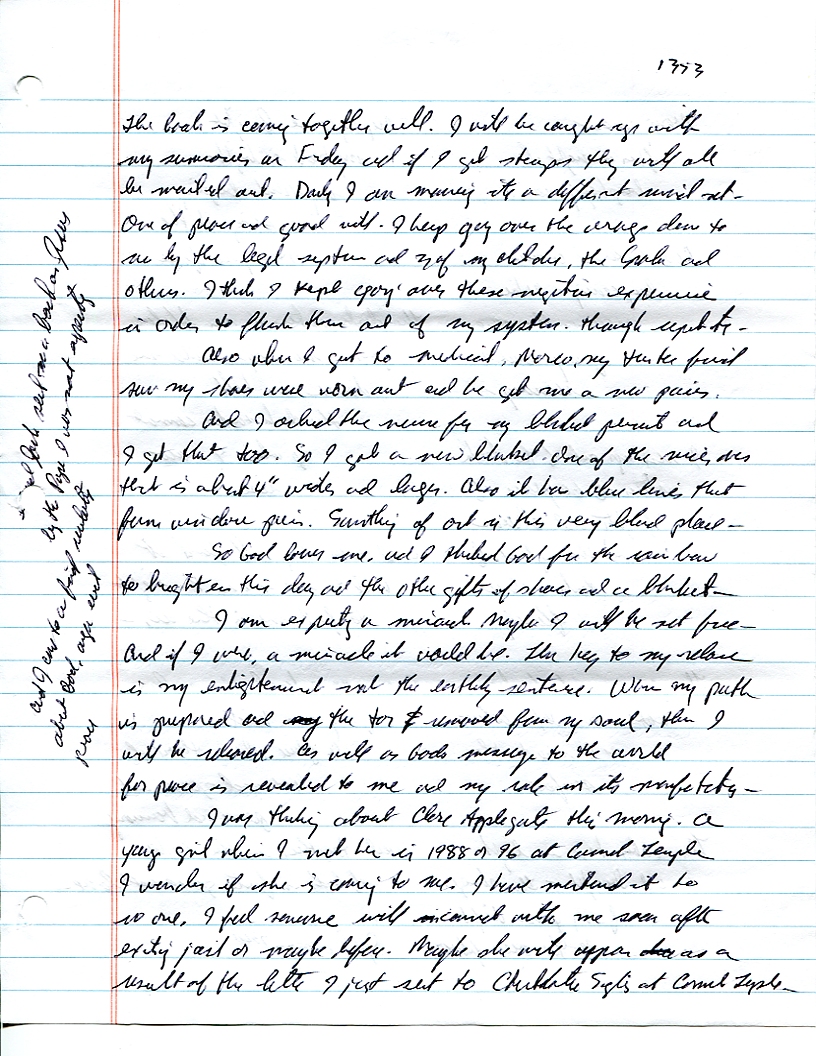 1353
The book is coming together well. I will be caught up with
my summaries on Friday and if I get stamps they will all
be mailed out. Daily I am moving into a different mind set-
One of peace and good will. I keep going over the wrongs done to
me by the legal system and of my children, the and
others. I think I kept going over these negative experience
in order to flush them out of my system. though
Also when I got to medical, my
saw my shoes were worn out and he got me a new pair.
And I asked the nurse for my blanket permit and
I got that too. So I got a new blanket. One of the nice ones
that is about 4" wider and longer. Also it has blue lines that
form window panes. Something of art in this very bland place-
So God loves me, and I thanked God for the rainbow
to brighten this day and the other gifts of shoes and a blanket-
I am expecting a miracle. Maybe I will be set free-
And if I were, a miracle it would be. The key to my release
is my enlightenment not the earthly sentence. When my path
is prepared and the removed from my soul, then I
will be released. As well as Gods message to the world
for peace is revealed to me and my role in its
I was thinking about Applegate this morning. a
young girl when I met her in 1988 or 96 at Carmel Temple
I wonder if she is coming to me. I have mentioned it to
no one. I feel someone will connect with me soon after
exiting jail or maybe before. Maybe she will appear as a
result of the letter I just sent to at Carmel Temple-
sent me a book on Jesus
by the Pope I was not expecting
and I am to a
about God,